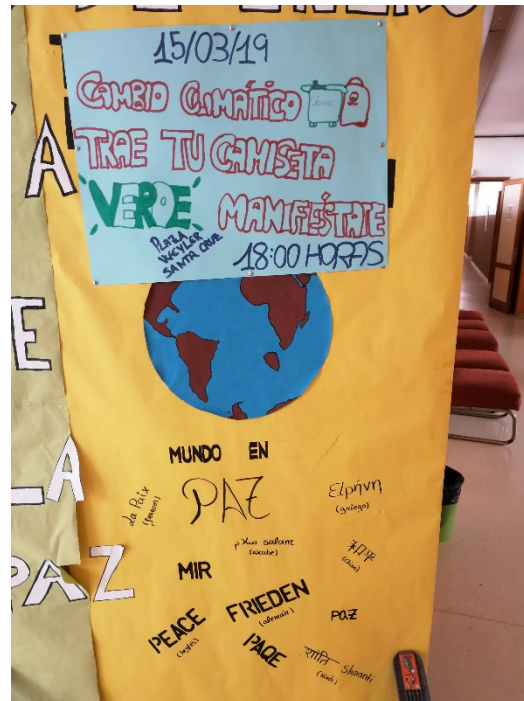 DE ENERO
15/03/19
CAMBIO CLIMÁTICO
TRAE TU CAMISETA
VERDE MANIFIÉSTATE
PLAZA
WEYLER
SANTA CRUZ
18:00 HORAS
A
E
LA
PAZ
MUNDO EN
PAZ
La Paix
(francés)
Ειρήνη
(griego)
salam
(árabe)
MIR
FRIEDEN
(alemán)
PAZ
PEACE
(inglés)
PAQE
शांति Shaanti
(hindi)